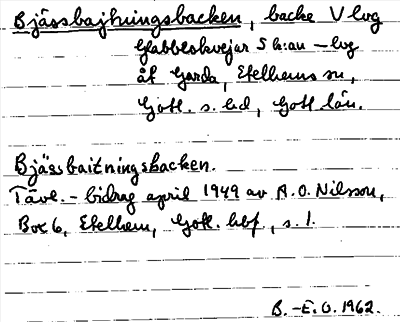 Bjässbajtningsbacken, backe V lvg
Gabbeskvejar S h:an – lvg
åt Garda, Etelhems sn,
Gotl. s. hd, Gotl. län.
Bjässbaitningsbacken.
Tävl.-bidrag april 1949 av R.O. Nilsson,
Box 6, Etelhem, Gotl. hbf, s. 1.
B.-E. O. 1962.